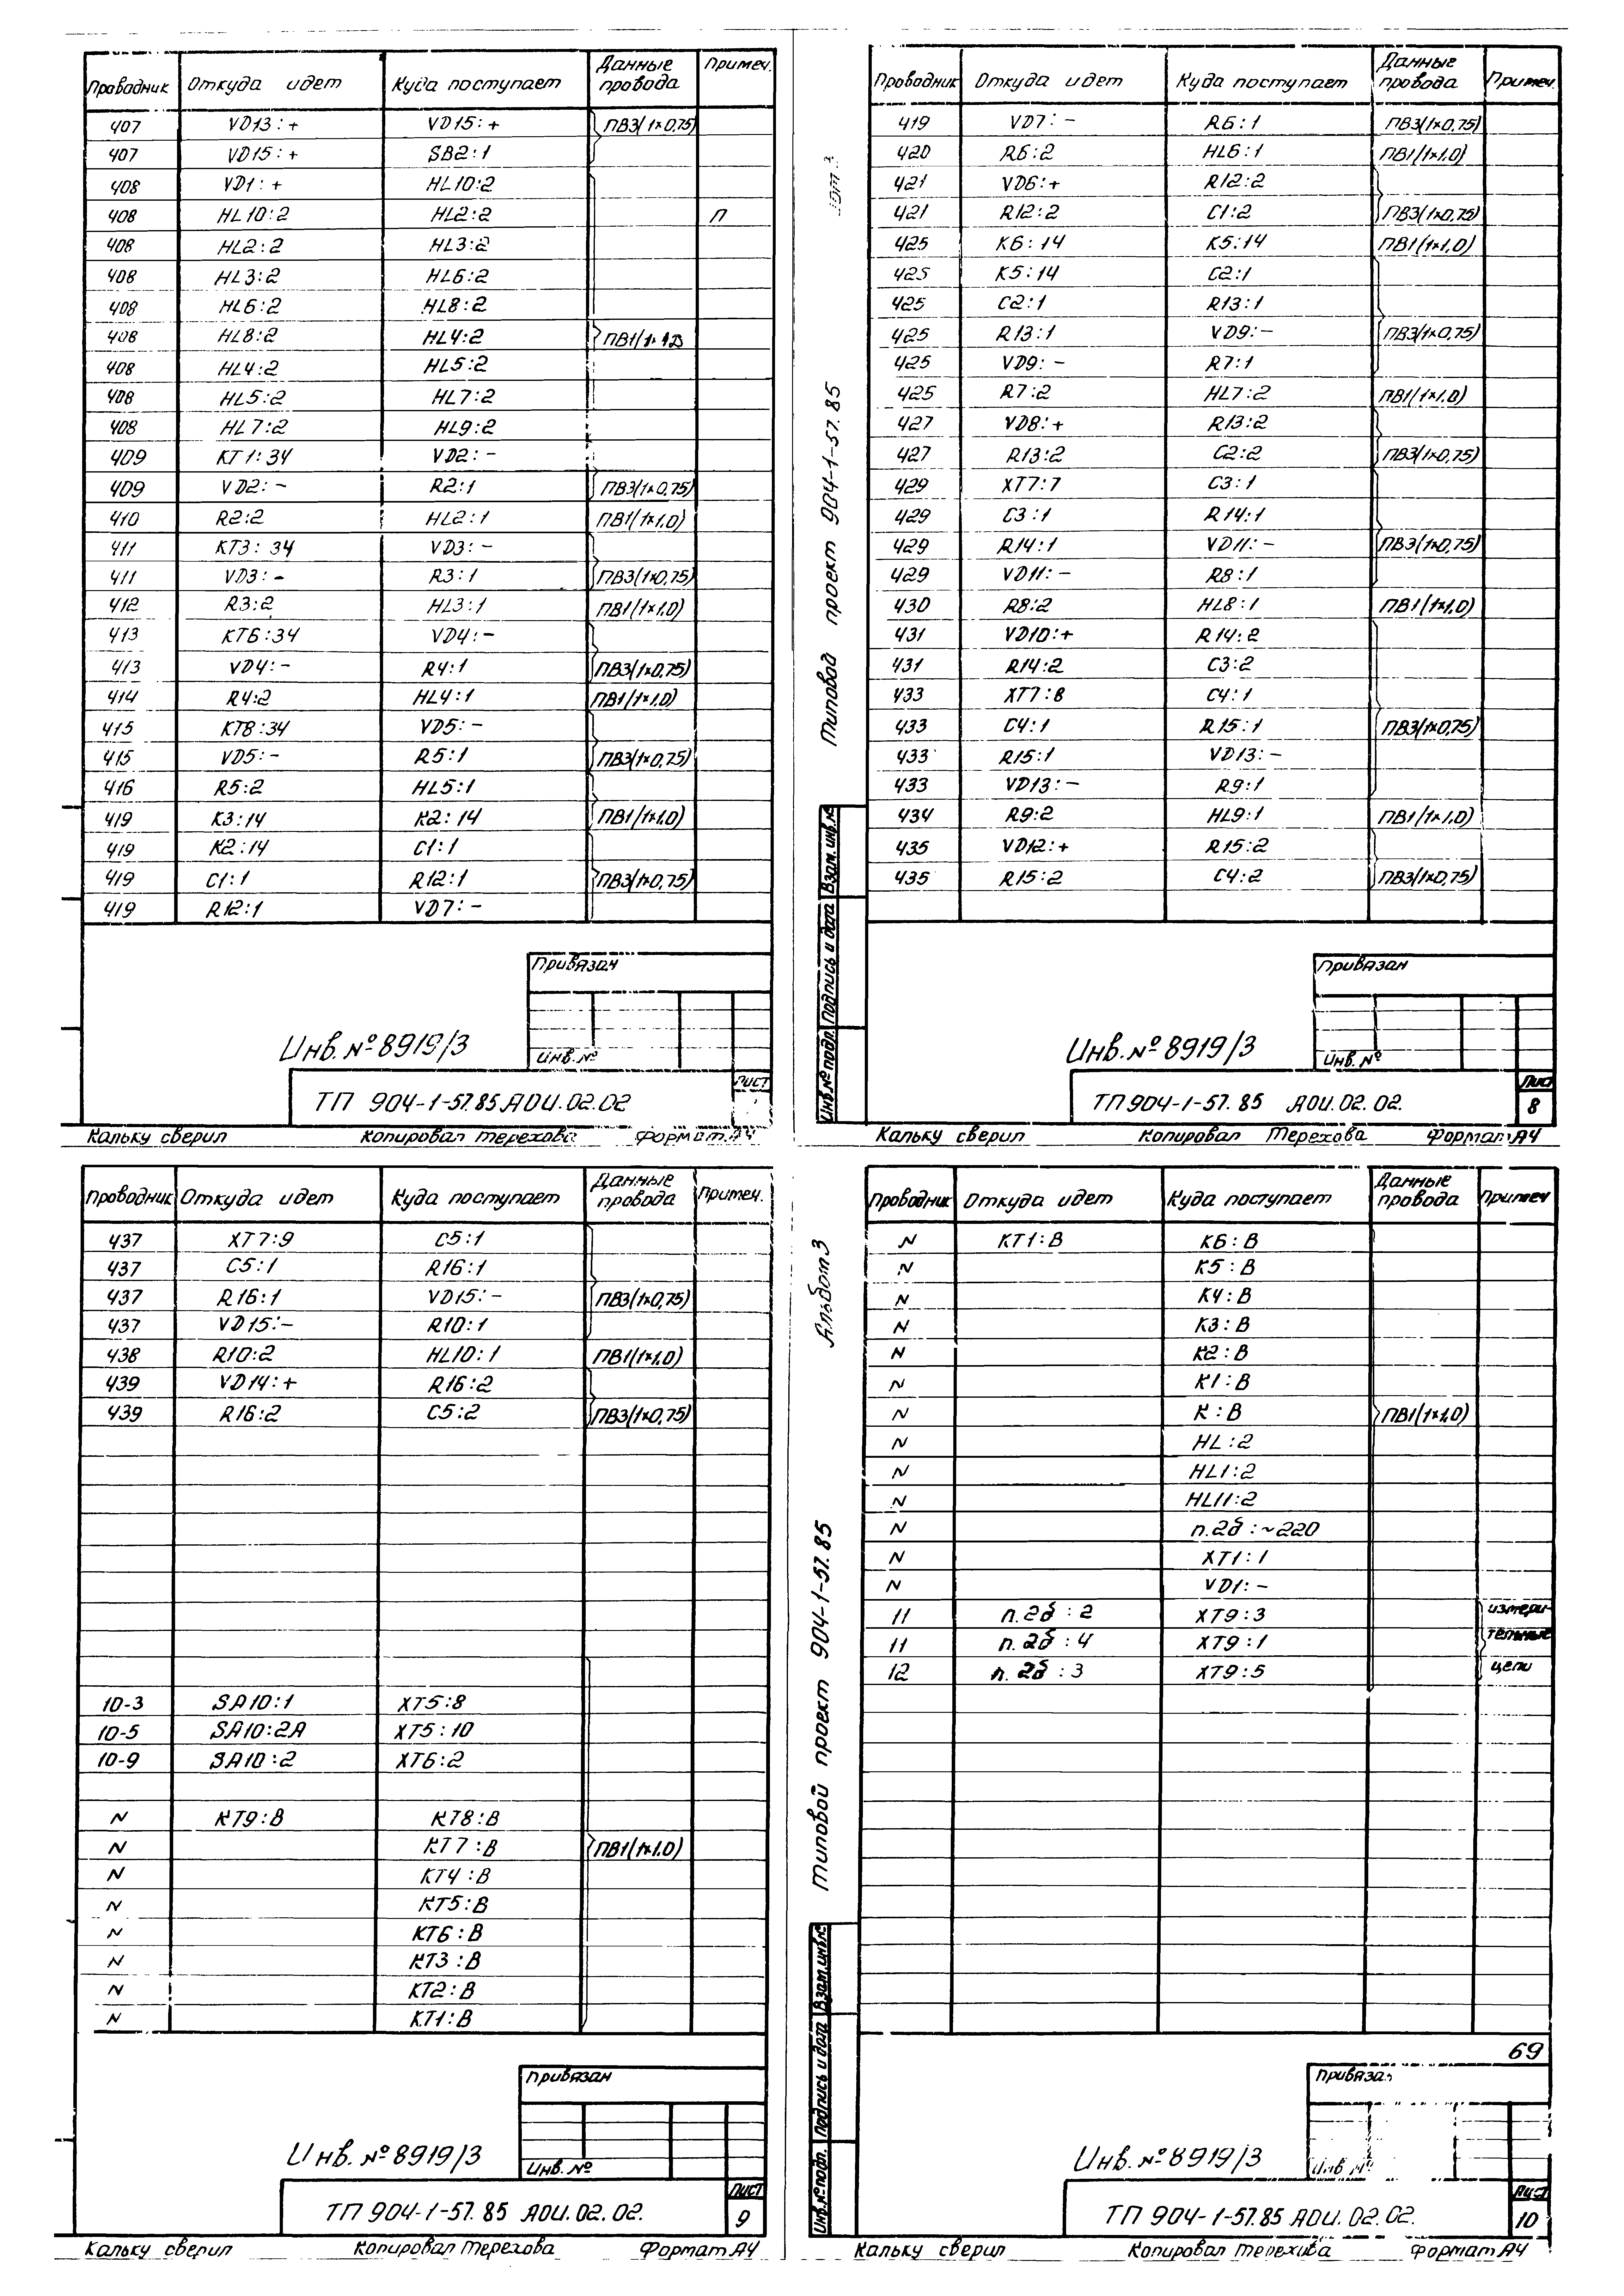 Проводник Откуда идет Куда поступает Данные провода Примеч.
407 VD13:+ VD15:+ ПВ3(1×0,75)
407 VD15:+ SB2:1
408 VD1:+ HL10:2
408 HL10:2 HL2:2 П
408 HL2:2 HL3:2
408 HL3:2 HL6:2
408 HL6:2 HL8:2
408 HL8:2 HL4:2
408 HL4:2 HL5:2
408 HL5:2 HL7:2
408 HL7:2 HL9:2
409 КТ1:34 VD2:-
409 VD2:- R2:1 ПВ3(1×0,75)
410 R2:2 HL2:1 ПВ1(1×1,0)
411 КТ3:34 VD3:-
411 VD3:- R3:1 ПВ3(1×0,75)
412 R3:2 HL3:1 ПВ1(1×1,0)
413 КТ6:34 VD4:-
413 VD4:- R4:1 ПВ3(1×0,75)
414 R4:2 HL4:1 ПВ1(1×1,0)
415 КТ8:34 VD5:-
415 VD5:- R5:1 ПВ3(1×0,75)
416 R5:2 HL5:1
419 К3:14 К2:14 ПВ1(1×1,0)
419 К2:14 С1:1
419 С1:1 R12:1 ПВ3(1×0,75)
419 R12:1 VD7:-
Привязан
Инв.№8919/3
Инв.№
Лист
ТП 904-1-57.85 АОИ.02.02
Кальку сверил Копировал Терехова Формат А4
Проводник Откуда идет Куда поступает Данные провода Примеч.
419 VD7:- R6:1 ПВ3(1×0,75)
420 R6:2 HL6:1 ПВ1(1×1,0)
421 VD6:+ R12:2
421 R12:2 С1:2 ПВ3(1×0,75)
425 К6:14 К5:14 ПВ1(1×1,0)
425 К5:14 С2:1
425 С2:1 R13:1
425 R13:1 VD9:- ПВ3(1×0,75)
425 VD9:- R7:1
425 R7:2 HL7:2 ПВ1(1×1,0)
427 VD8:+ R13:2
427 R13:2 С2:2 ПВ3(1×0,75)
429 ХТ7:7 С3:1
429 С3:1 R14:1
429 R14:1 VD11:- ПВ3(1×0,75)
429 VD11:- R8:1
430 R8:2 HL8:1 ПВ1(1×1,0)
431 VD10:+ R14:2
431 R14:2 С3:2
433 ХТ7:8 С4:1
433 С4:1 R15:1 ПВ3(1×0,75)
433 R15:1 VD13:-
433 VD13:- R9:1
434 R9:2 HL9:1 ПВ1(1×1,0)
435 VD12:+ R15:2
435 R15:2 С4:2 ПВ3(1×0,75)
Типовой проект 904-1-57.85
Инв.№подл. Подпись и дата Взам.инв.№
Привязан
Инв.№8919/3
Инв.№
Лист
ТП904-1-57.85 АОИ.02.02. 8
Кальку сверил Копировал Терехова Формат А4
Проводник Откуда идет Куда поступает Данные провода Примеч.
437 ХТ7:9 С5:1
437 С5:1 R16:1
437 R16:1 VD15:- ПВ3(1×0,75)
437 VD15:- R10:1
438 R10:2 HL10:1 ПВ1(1×1,0)
439 VD14:+ R16:2
439 R16:2 С5:2 ПВ3(1×0,75)
10-3 SA10:1 ХТ5:8
10-5 SA10:2А ХТ5:10
10-9 SA10:2 ХТ6:2
N КТ9:В КТ8:В
N КТ7:В ПВ1(1×1,0)
N КТ4:В
N КТ5:В
N КТ6:В
N КТ3:В
N КТ2:В
N КТ1:В
Привязан
Инв.№8919/3
Инв.№
Лист
ТП904-1-57.85 АОИ.02.02. 9
Кальку сверил Копировал Терехова Формат А4
Проводник Откуда идет Куда поступает Данные провода Примеч
N КТ1:В К6:В
N К5:В
N К4:В
N К3:В
N К2:В
N К1:В
N К:В ПВ1(1×1,0)
N HL:2
N HL1:2
N HL11:2
N п.2б:~220
N ХТ1:1
N VD1:-
11 п.2б:2 ХТ9:3 измери-
11 п.2б:4 ХТ9:1 тельные
12 п.2б:3 ХТ9:5 цепи
Альбом 3
Типовой проект 904-1-57.85
Инв.№подл. Подпись и дата Взам.инв.№
69
Привязан
Инв.№8919/3
Инв №
Лист
ТП 904-1-57.85 АОИ.02.02. 10
Кальку сверил Копировал Терехова Формат А4